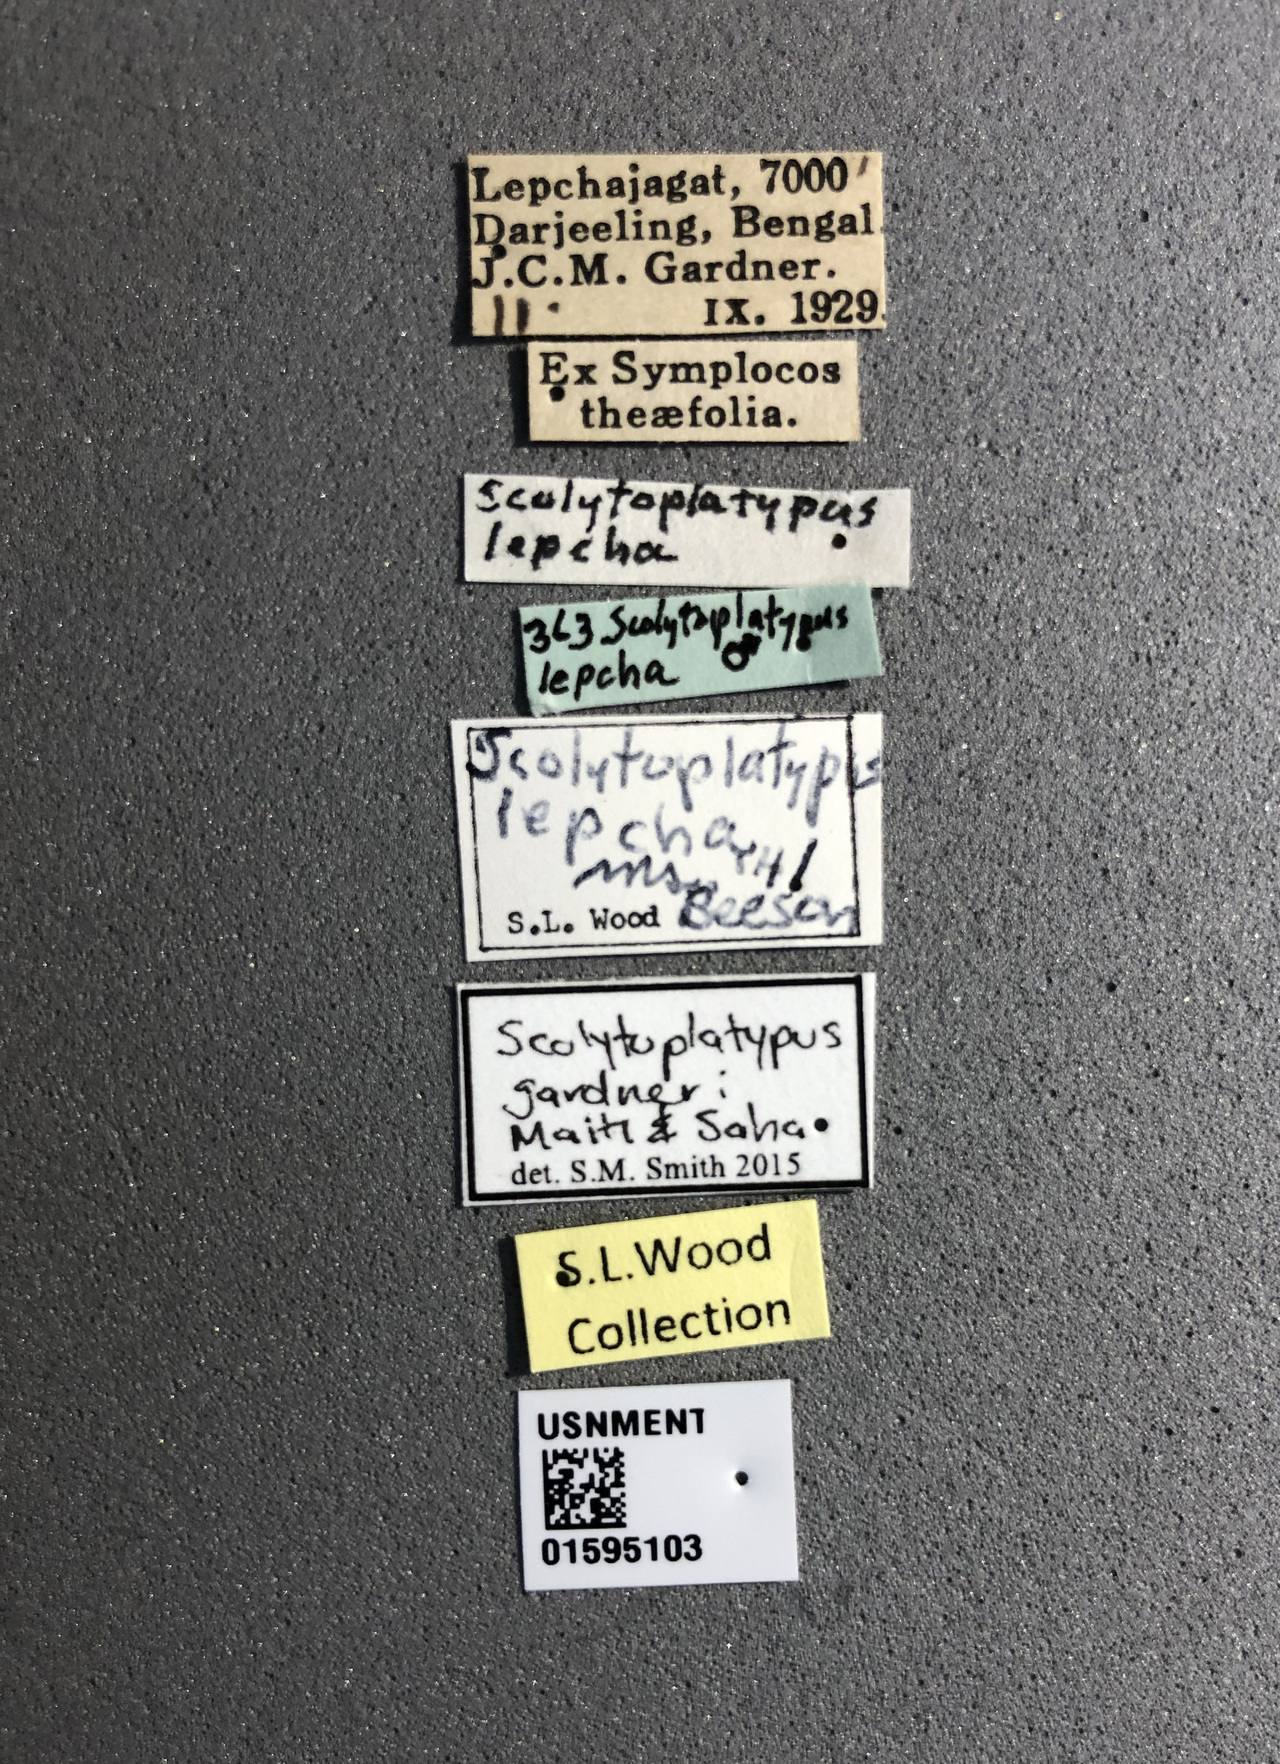 Lepchajagat, 7000'
Darjeeling, Bengal.
J.C.M. Gardner.
11. IX. 1929.
Ex Symplocos
theæfolia.
Scolytoplatypus
lepcha
Scolytoplatypus
lepcha ♂
Scolytoplatypus
lepcha
ms.
S.L. Wood Beeson
Scolytoplatypus
gardneri
Maiti & Saha
det. S.M. Smith 2015
S.L.Wood
Collection
USNMENT
01595103